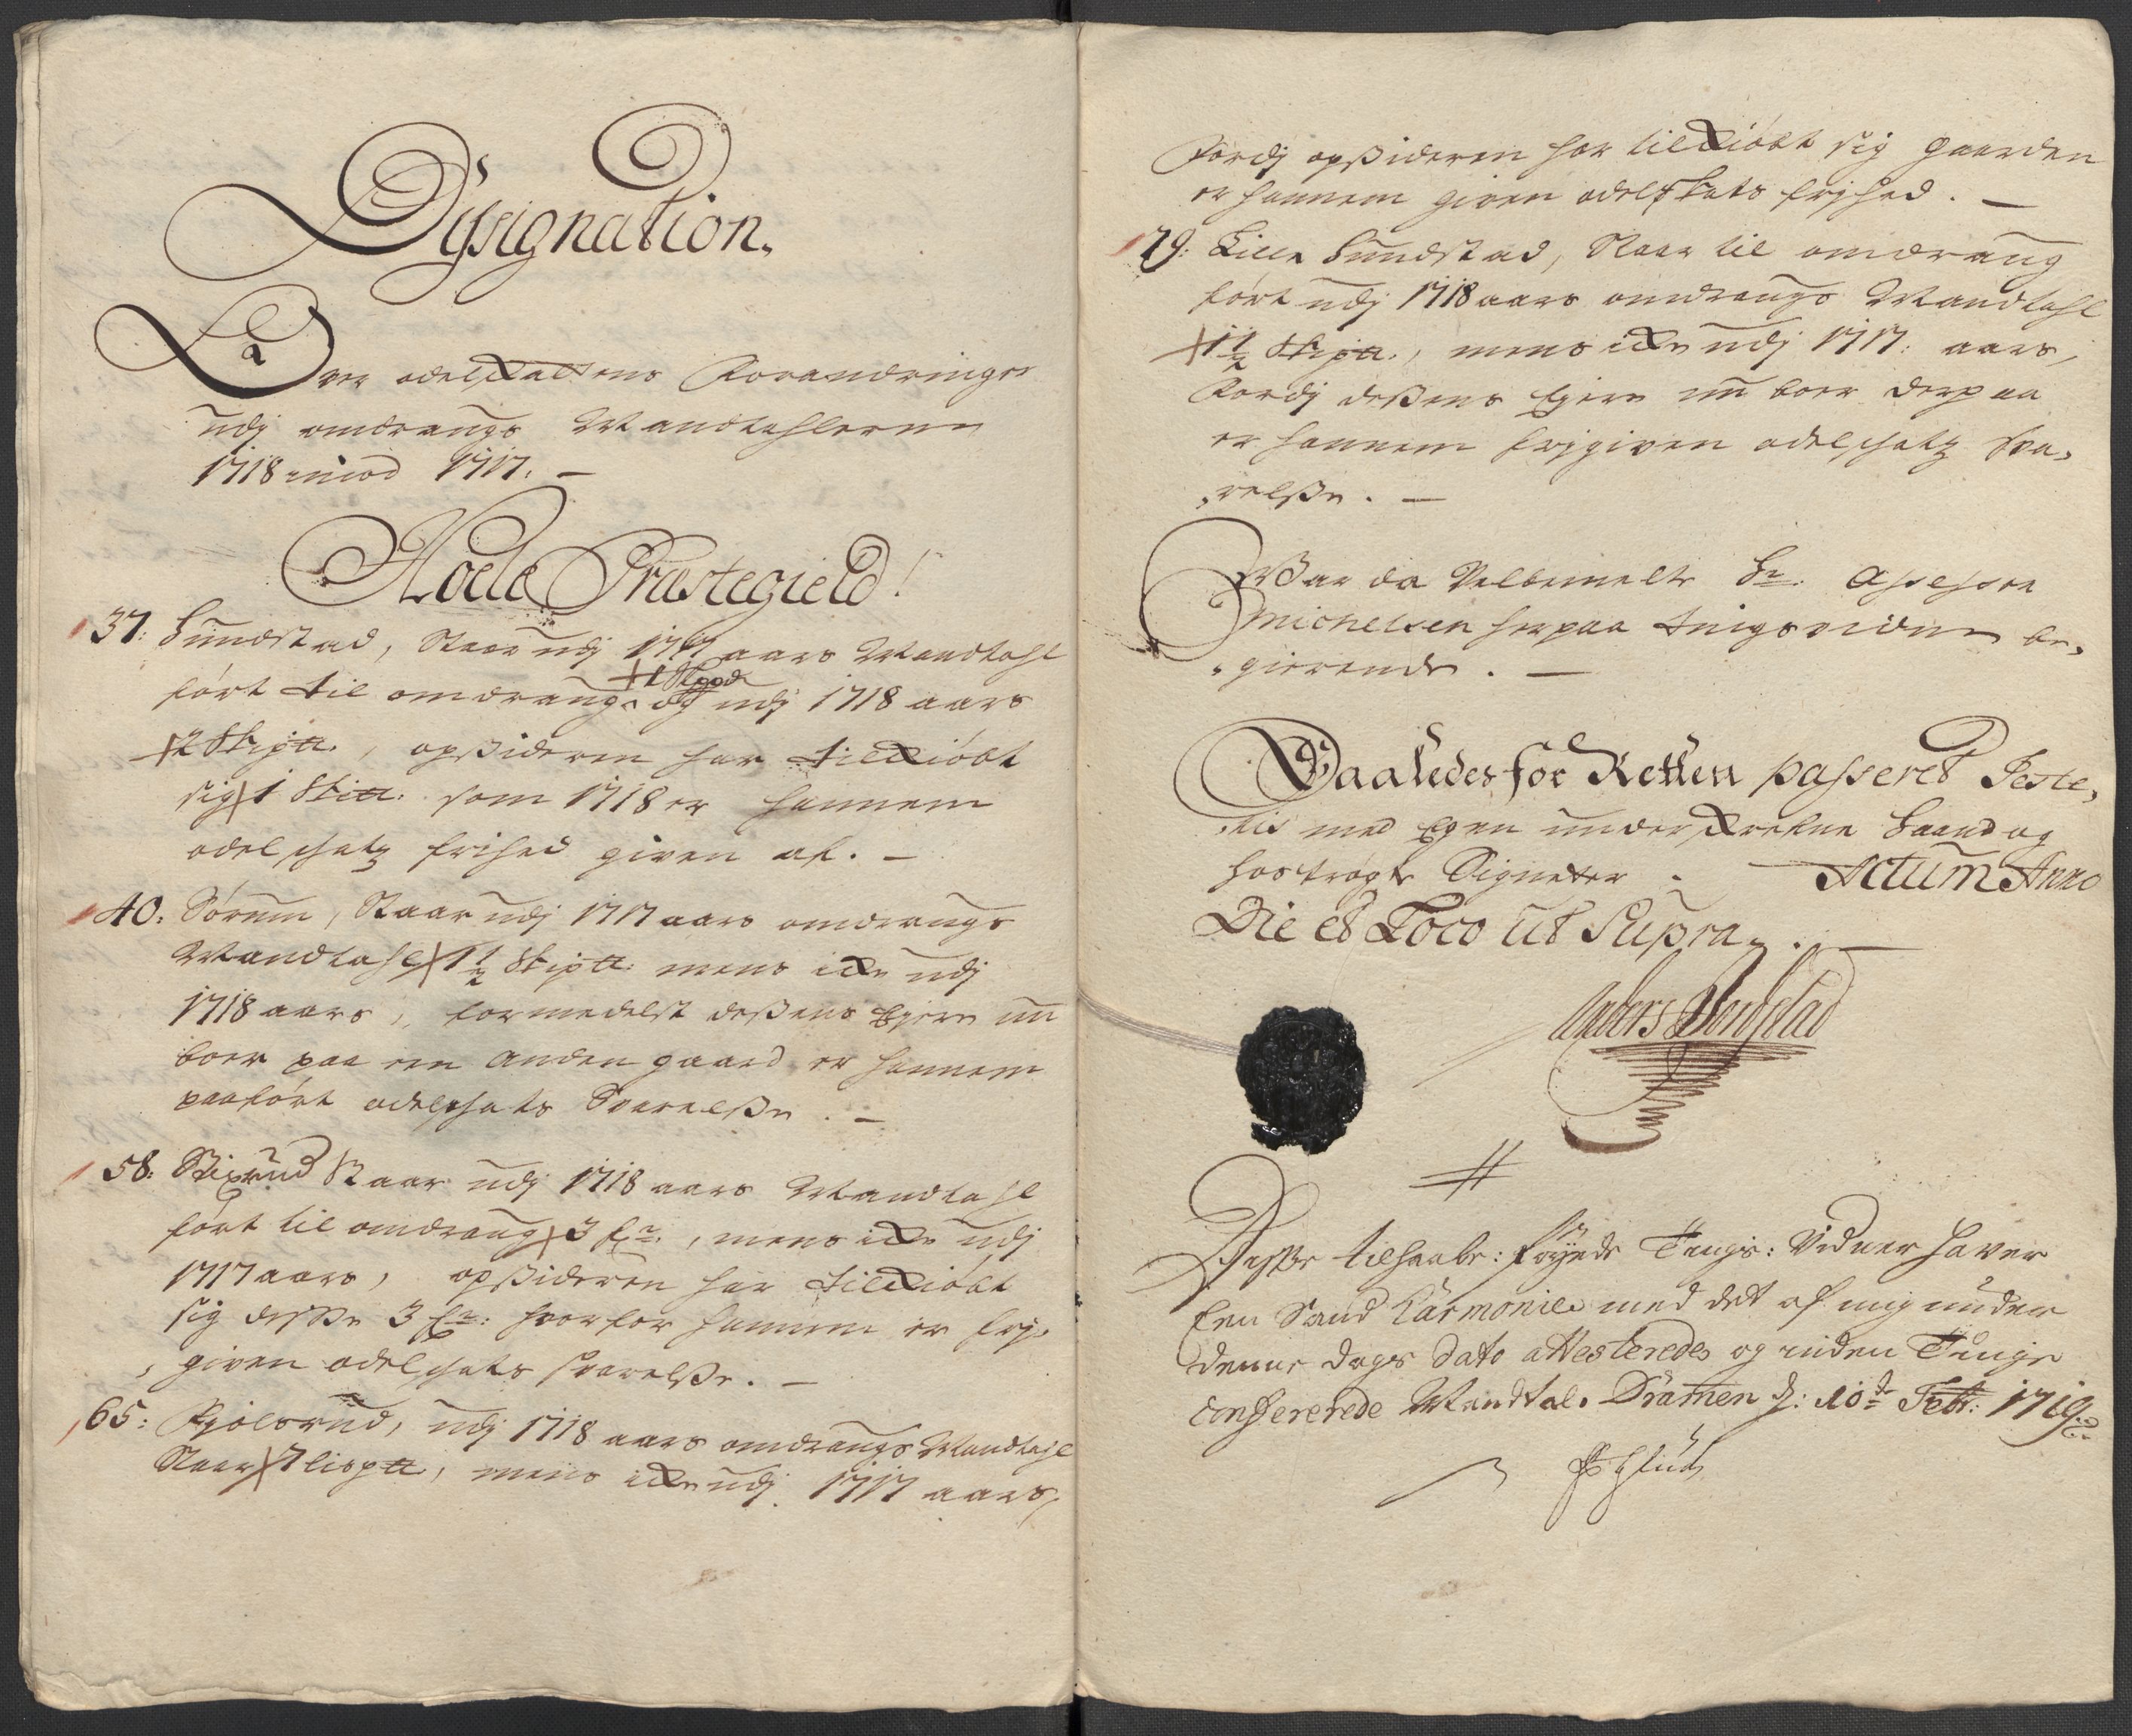 Dessignation.
Over odelskattens Forandringer
udj omdrangs Mandtahlerne
1718 imod 1717. —
Hoele Præstegield!
37: Sundstad, Staar udj 1717 aars Mandtahl
ført til omdrang + 1 Skpd og udj 1718 aars
+ 2 Skiptt., opsideren har tilkiøbt
sig + 1 Skitt. som 1718 er hannem
odelschatz frihed given af. —
40: Sørum, Staar udj 1717 aars omdrangs
Mandtahl + 1 1/2 Skiptt. mens icke udj
1718 aars, formedelst dessens Ejere nu
boer paa een anden gaard, er hannem
paaført odelschats Svarelsse. —
58: Staar udj 1718 aars Mandtahl
ført til omdrang + 3 fr:, mens icke udj
1717 aars, opsideren har tilkiøbt
sig disse 3 fr: hvorfor hannem er frj-
given odelschats svarelsse. —
65: Kjølsrud, udj 1718 aars omdrangs Mandtahl
Staar + 7 lisptt, mens icke udj 1717 aars,
Fordj opsideren har tilkiøbt sig gaarden
er hannem given odelskats frjhed. —
79: Lille Sundstad, Staar til omdrang
ført udj 1718 aars omdrangs Mandtahl
+ 1 1/2 Skiptt., mens icke udj 1717: aars,
Fordj dessens Ejere nu boer derpaa
er hannem frjgiven odelschatz Sva-
relsse. —
War da Velbemelte Hr. Assessor
Michelsen herpaa tingsvidne be-
gierende. —
Saaledes for Retten passeret Teste-
ris med Egen underskrefne Haand og
hostrøgte Signeter. — Actum Anno
Die et Loco ut Supra.
Anders
Disse tilhaabe: føyede Tings: Vidner haver
Een Sand Harmonie med det af mig under
denne dags dato attesterede og inden Tinge
Confererede Mandtal. Dramen d: 10de Febr: 1719.